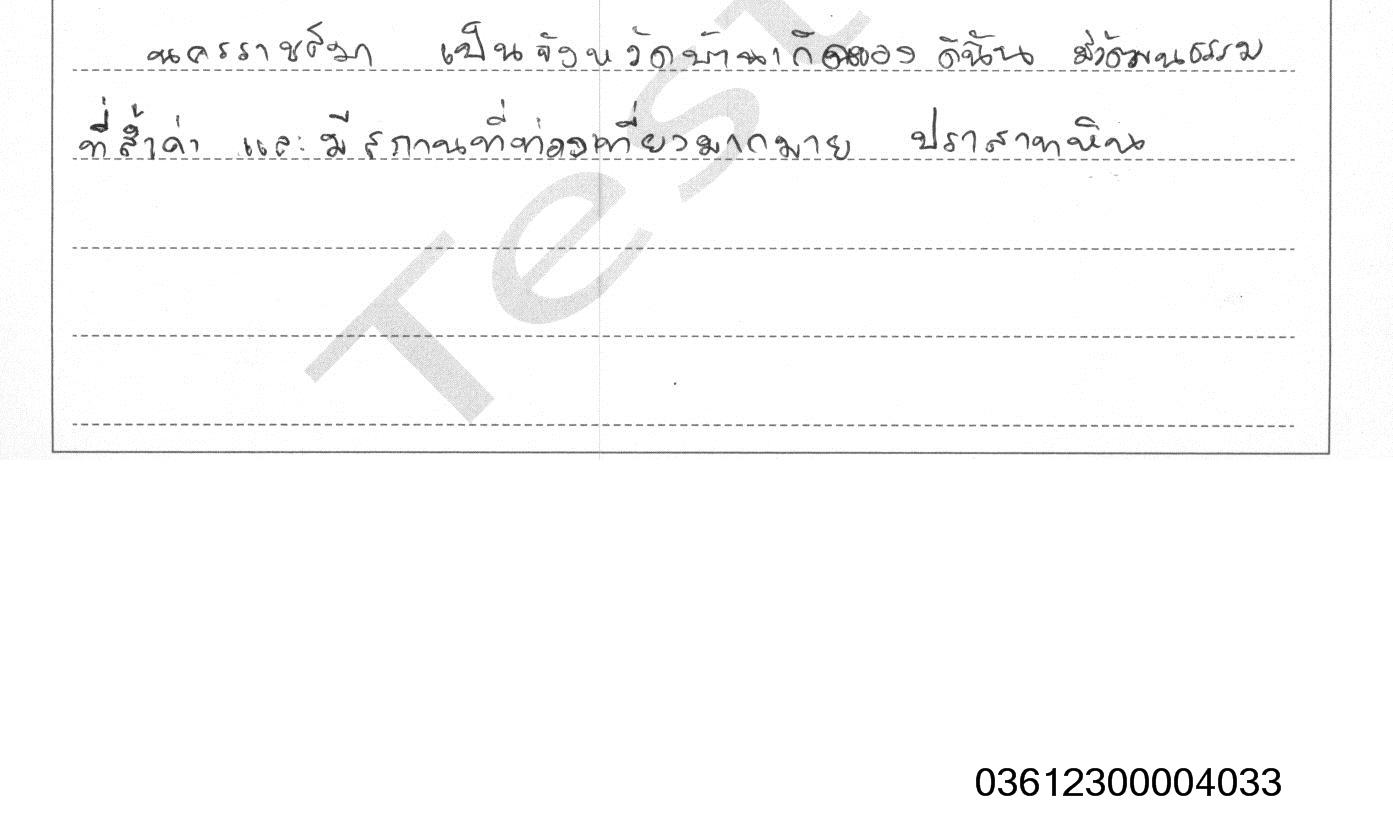 นครราชสีมา เป็นจังหวัดบ้านเกิดของ ดิฉัน มีวัฒนธรรม
ที่ล้ำค่า และมีสถานที่ท่องเที่ยวมากมาย ปราสาทหิน
Test
03612300004033